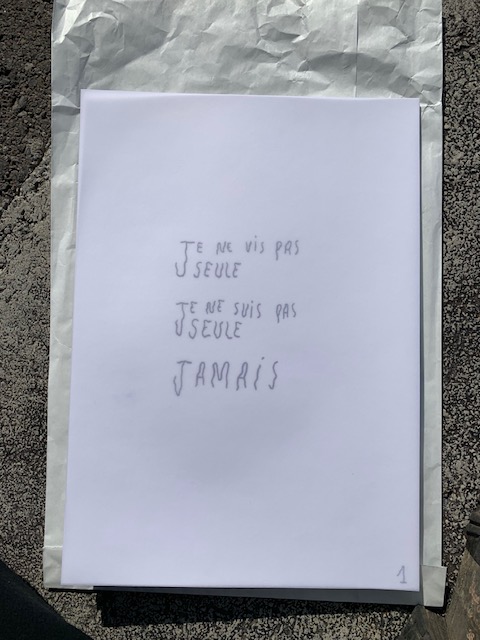 JE NE ViS PAS
SEULE
JE NE SUiS PAS
SEULE
JAMAiS
1